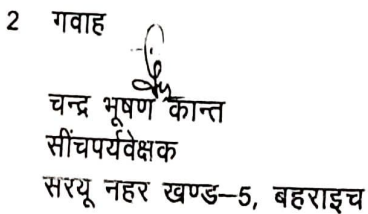 2 गवाह
चन्द्र भूषण कान्त
सींचपर्यवेक्षक
सरयू नहर खण्ड–5, बहराइच